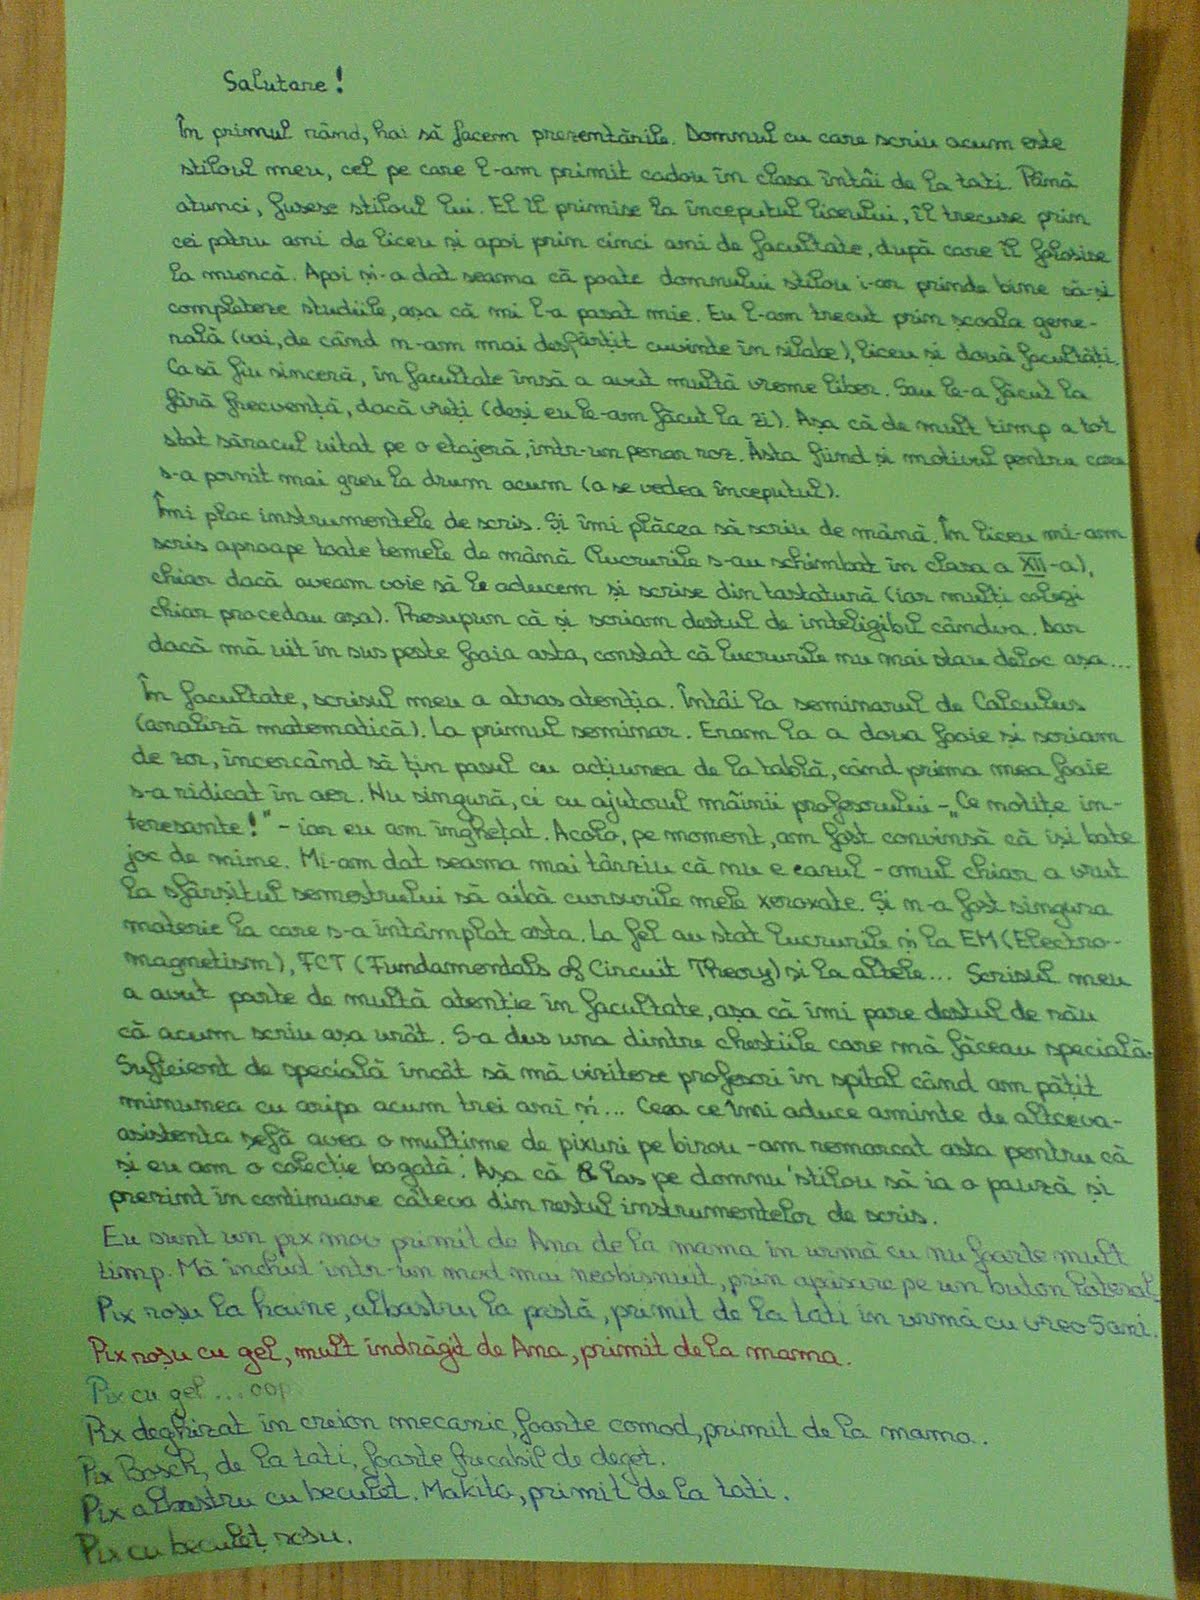 Salutare!
În primul rând, hai să facem prezentările. Domnul cu care scriu acum este
stiloul meu, cel pe care l-am primit cadou în clasa întâi de la tati. Până
atunci, fusese stiloul lui. El îl primise la începutul liceului, îl trecuse prin
cei patru ani de liceu și apoi prin cinci ani de facultate, după care îl folosise
la muncă. Apoi și-a dat seama că poate domnului stilou i-ar prinde bine să-și
completeze studiile, așa că mi l-a pasat mie. Eu l-am trecut prin școala gene-
rală (vai, de când n-am mai despărțit cuvinte în silabe), liceu și două facultăți.
Ca să fiu sinceră, în facultate însă a avut multă vreme liber. Sau le-a făcut la
fără frecvență, dacă vreți (deși eu le-am făcut la zi). Așa că de mult timp a tot
stat săracul uitat pe o etajeră, intr-un penar roz. Ăsta fiind și motivul pentru care
s-a pornit mai greu la drum acum (a se vedea începutul).
Îmi plac instrumentele de scris. Și îmi plăcea să scriu de mână. În liceu mi-am
scris aproape toate temele de mână (lucrurile s-au schimbat în clasa a XII-a),
chiar dacă aveam voie să le aducem și scrise din tastatură (iar mulți colegi
chiar procedau așa). Presupun că și scriam destul de inteligibil cândva. Dar
dacă mă uit în sus peste foaia asta, constat că lucrurile nu mai stau deloc așa...
În facultate, scrisul meu a atras atenția. Întâi la seminarul de Calculus
(analiză matematică). La primul seminar. Eram la a doua foaie și scriam
de zor, încercând să țin pasul cu acțiunea de la tablă, când prima mea foaie
s-a ridicat în aer. Nu singură, ci cu ajutorul mâinii profesorului - „Ce notițe in-
teresante!" - iar eu am înghețat. Acolo, pe moment, am fost convinsă că își bate
joc de mine. Mi-am dat seama mai târziu că nu e cazul - omul chiar a vrut
la sfârșitul semestrului să aibă cursurile mele xeroxate. Și n-a fost singura
materie la care s-a întâmplat asta. La fel au stat lucrurile și la EM (Electro-
magnetism), FCT (Fundamendals of Circuit Theory) și la altele... Scrisul meu
a avut parte de multă atenție în facultate, așa că îmi pare destul de rău
că acum scriu așa urât. S-a dus una dintre chestiile care mă făceau specială.
Suficient de specială încât să mă viziteze profesori în spital când am pățit
minunea cu aripa acum trei ani și... Ceea ce îmi aduce aminte de altceva-
asistenta șefă avea o multime de pixuri pe birou - am remarcat asta pentru că
și eu am o colecție bogată. Așa că îl las pe domnu' stilou să ia o pauză și
prezint în continuare câteva din restul instrumentelor de scris.
Eu sunt un pix mov primit de Ana de la mama în urmă cu nu foarte mult
timp. Mă închid într-un mod mai neobisnuit, prin apăsare pe un buton lateral.
Pix roșu la haine, albastru la pastă, primit de la tati în urmă cu vreo 5 ani.
Pix roșu cu gel, mult îndrăgit de Ana, primit de la mama.
Pix cu gel ... oop
Pix deghizat în creion mecanic, foarte comod, primit de la mama.
Pix Bosch, de la tati, foarte frecabil de deget.
Pix albastru cu beculeț. Makita, primit de la tati.
Pix cu beculeț roșu.